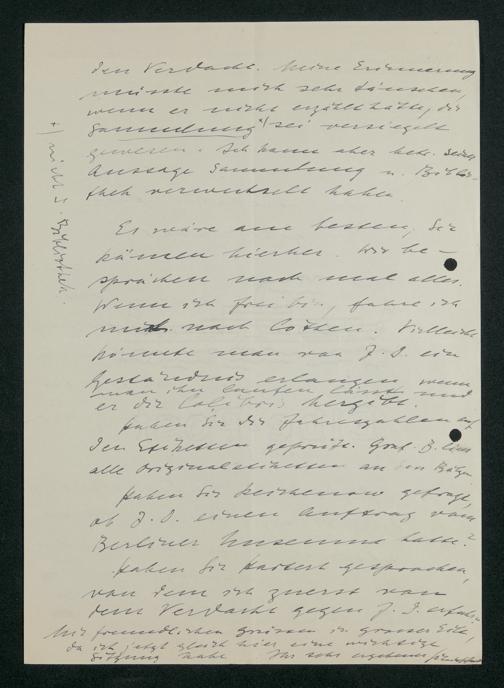 den Verdacht. Meine Erinnerung
müsste mich sehr täuschen,
wenn er nicht erzählt hätte, die
Sammlung +) sei versiegelt
gewesen. Ich kann aber betr. seiner
Aussage Sammlung u. Biblio-
thek verwechselt haben.
+) nicht s. Bibliothek.
Es wäre am besten, Sie
kämen hierher. Wir be-
sprächen noch mal alles.
Wenn ich frei bin, fahre ich
mit nach . Vielleicht
könnte man von J. S. ein
Geständnis erlangen, wenn
man ihn laufen lässt und
er die Colibris hergibt.
Haben Sie die Jahreszahlen auf
den Etiketten geprüft. Graf B. liess
alle Originaletiketten an den Bälgen
Haben Sie Reichenow gefragt,
ob J. S. einen Auftrag vom
Berliner Museum hatte?
Haben Sie Hartert gesprochen,
von dem ich zuerst von
dem Verdacht gegen J. S. erfuhr?
Mit freundlichen Grüssen in grosser Eile,
da ich jetzt gleich hier eine wichtige
Sitzung habe Ihr sehr ergebener